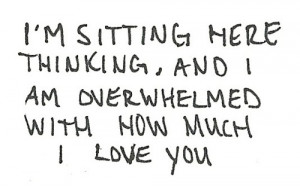 I'M SITTING HERE
THINKING, AND I
AM OVERWHELMED
WITH HOW MUCH
I LOVE YOU